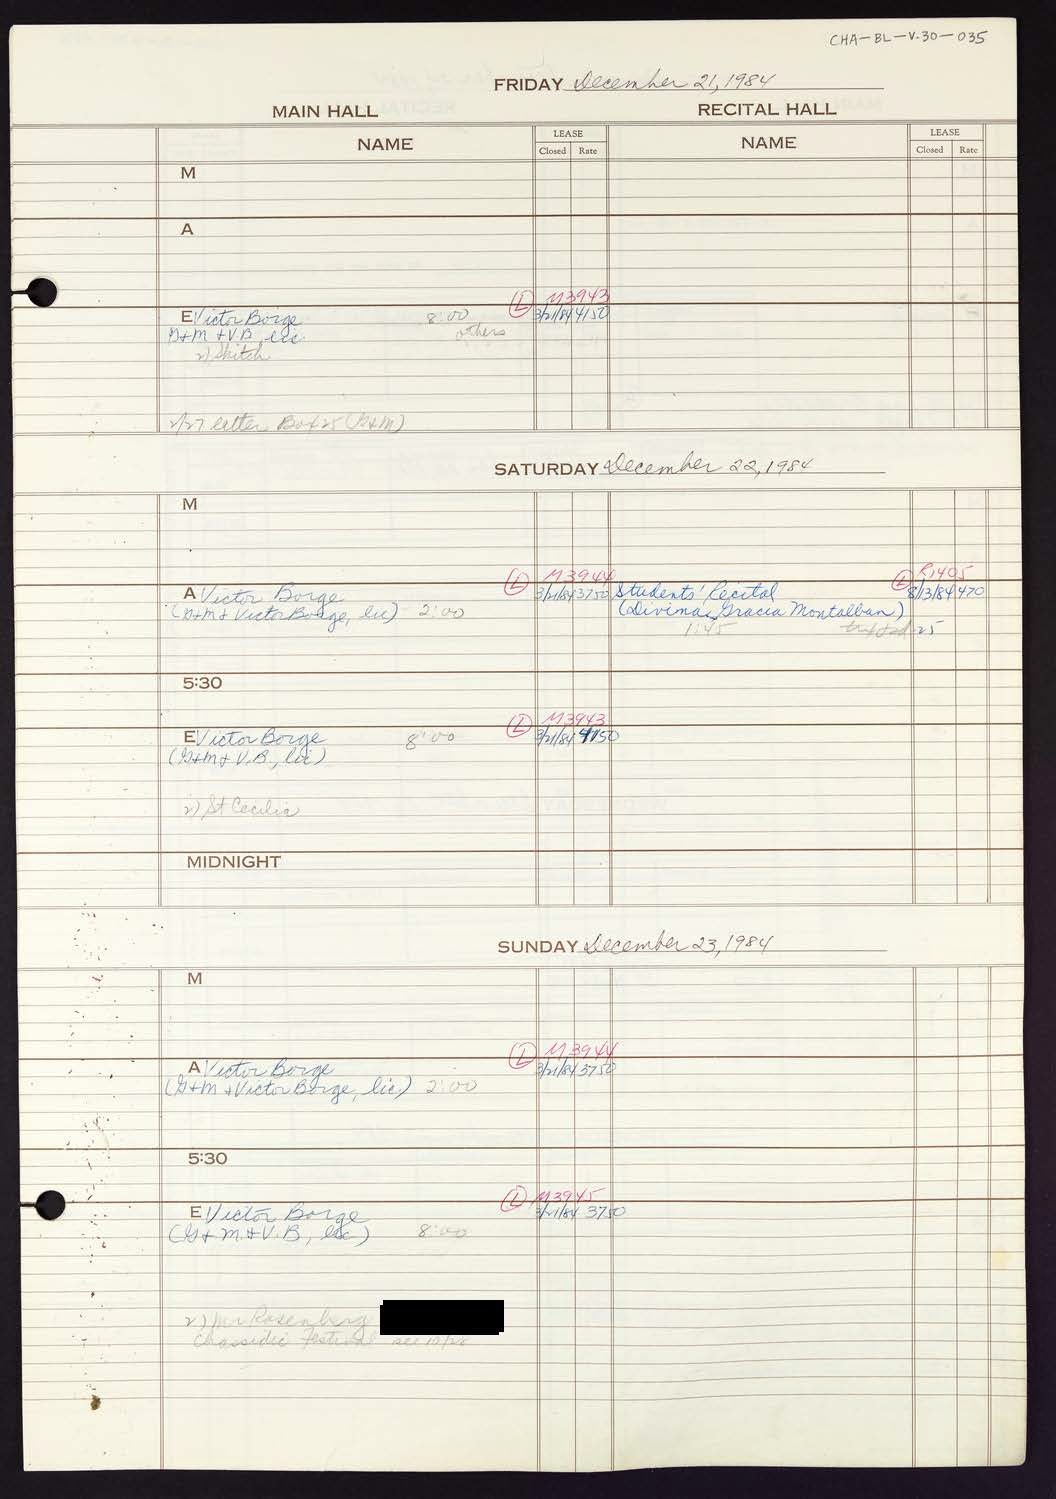 CHA-BL-V.30-035
FRIDAY December 21, 1984
MAIN HALL RECITAL HALL
NAME LEASE NAME LEASE
Closed Rate Closed Rate
M
A
(L) M3943
E Victor Borge 8:00 3/21/84 4150
G+M + V.B., lic. others
2) Skitch
2/27 letter Box 25 (G+M)
SATURDAY December 22, 1984
M
(L) M3944 (L) R1405
A Victor Borge 3/21/84 3750 Students' Recital 8/3/84 470
(G+M + Victor Borge, lic) 2:00 (Divina Gracia Montalban)
1:45 25
5:30
(L) M3943
E Victor Borge 8:00 3/21/84 4150
(G+M + V.B., lic)
2) St Cecilia
MIDNIGHT
SUNDAY December 23, 1984
M
(L) M3944
A Victor Borge 3/21/84 3750
(G+M + Victor Borge, lic.) 2:00
5:30
(L) M3945
E Victor Borge 3/21/84 3750
(G+M. + V.B., lic) 8:00
2) Mr Rosenberg
Chassidic Festival see 10/28